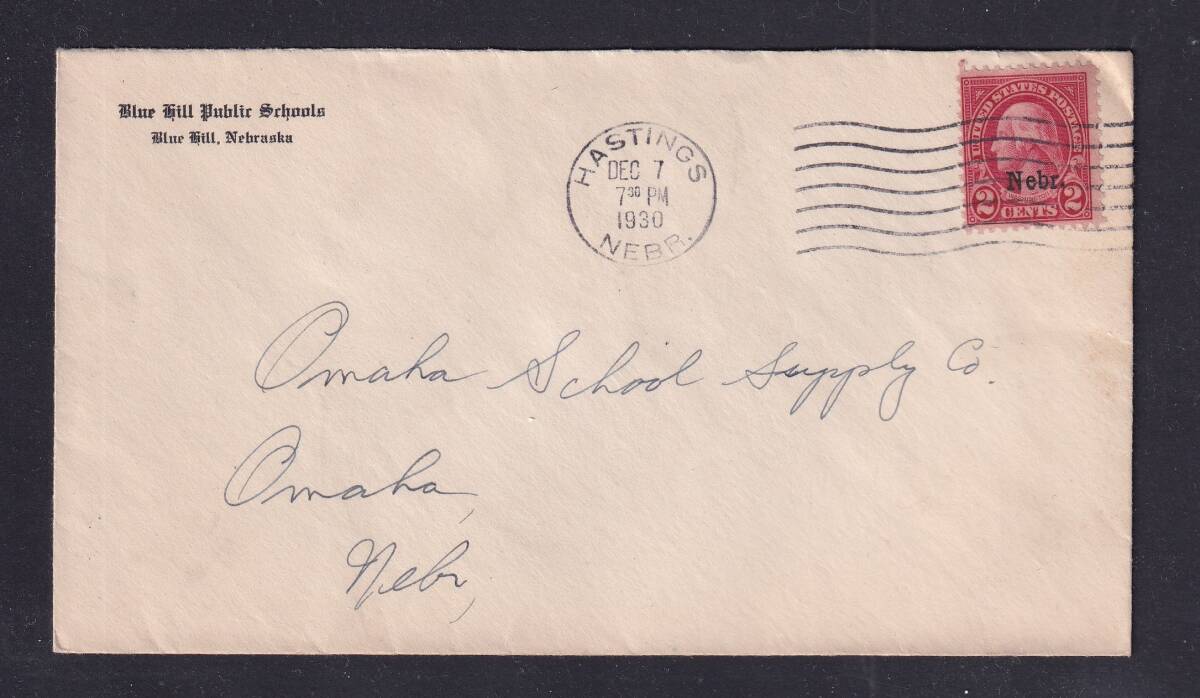 Blue Hill Public Schools
Blue Hill, Nebraska
HASTINGS
DEC 7
7 30 PM
1930
NEBR.
UNITED STATES POSTAGE
Nebr.
2 CENTS 2
Omaha School Supply Co.
Omaha,
Nebr,